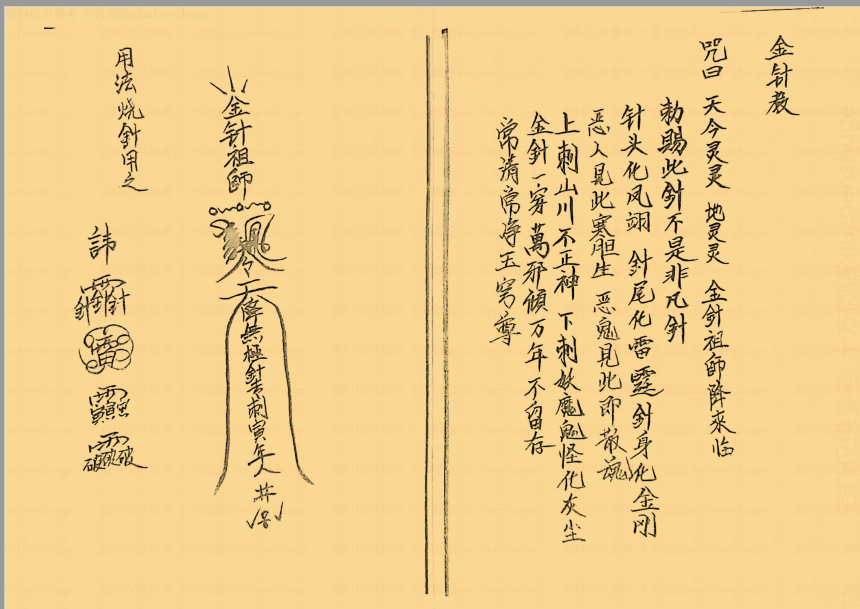 金針教
咒曰 天今灵灵 地灵灵 金針祖師降來临
勅賜此針不是非凡針
针头化凤翊 針尾化雷霆針身化金刚
恶人見此寒胆生 恶鬼見此即散魂
上刺山川不正神 下刺妖魔鬼怪化灰尘
金針一穿萬邪傾万年不留存
常清常净玉穹尊
金针祖師
降無極針刺寅年人
用法烧針用之
諱